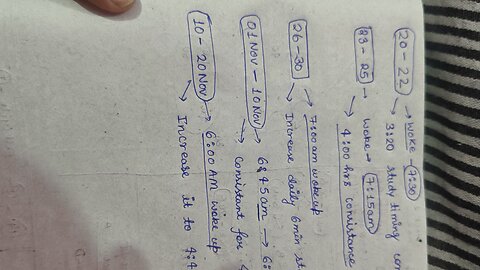 20 - 22 → Woke - 7:30
→ 3:20 study timing con
23 - 25 → Woke → 7:15am
→ 4:00 hrs consistance
26 - 30 → 7:00 am woke up
→ Increase daily 6 min st
01 Nov - 10 Nov → 6:45 am → 6:
→ consistant for
10 - 20 Nov → 6:00 AM woke up
→ Increase it to 4:4